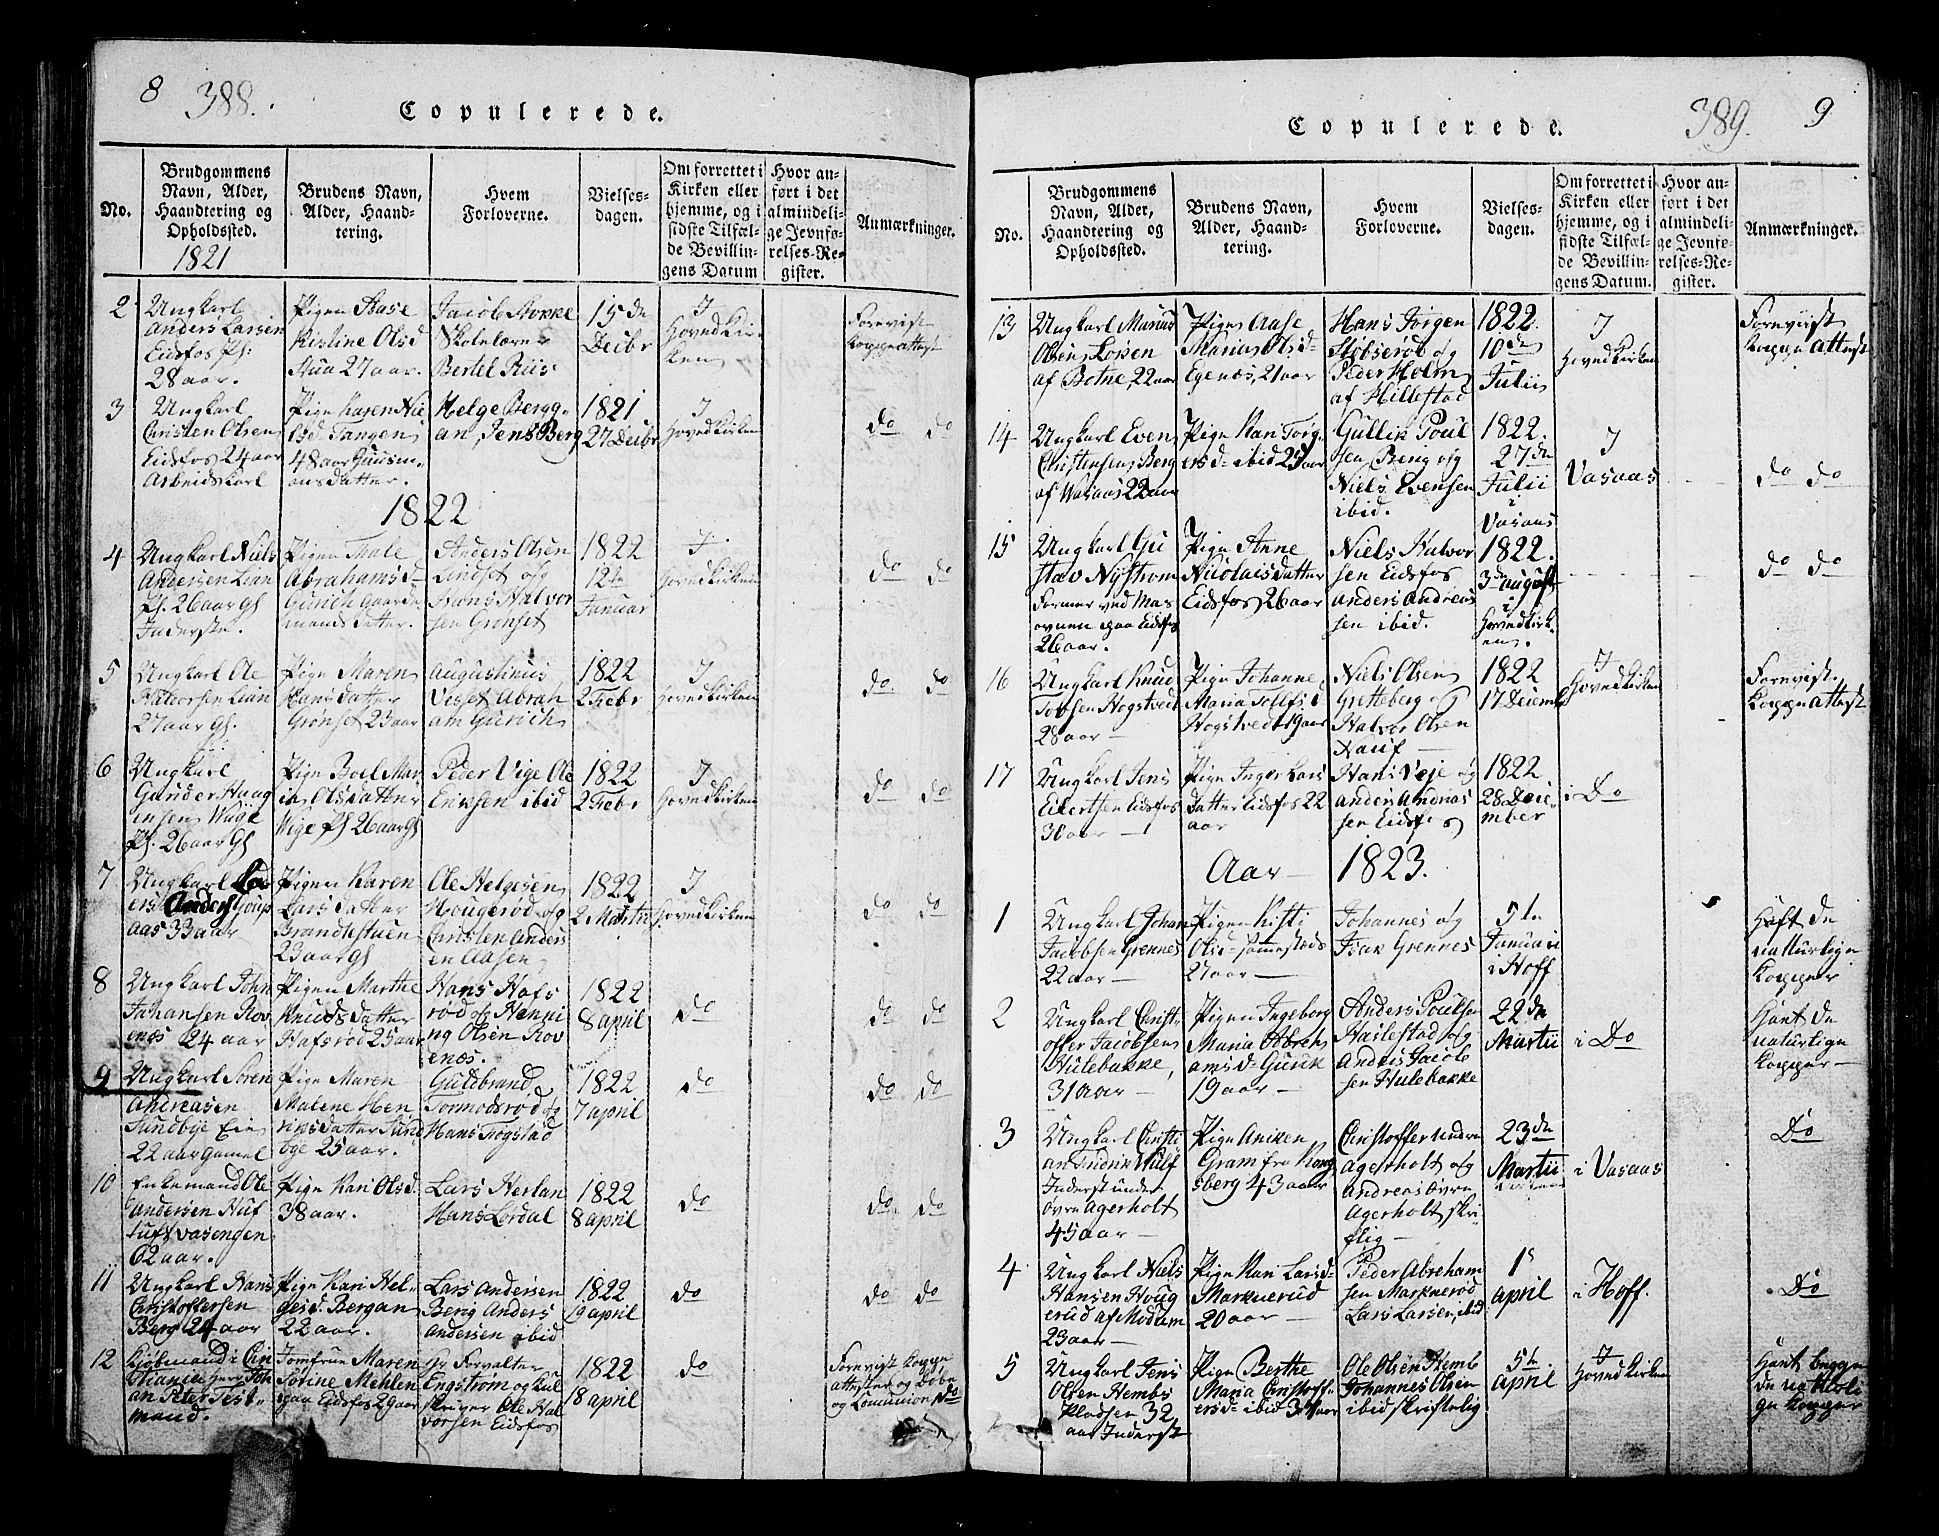 8 388.
Copulerede.
No.
Brudgommens
Navn, Alder,
Haandtering og
Opholdssted.
1821
Brudens Navn,
Alder, Haand-
tering.
Hvem
Forloverne.
Vielses-
dagen.
Om forrettet i
Kirken eller
hjemme, og i
sidste Tilfæl-
de Bevillin-
gens Datum
Hvor an-
ført i det
almindeli-
ge Jevnfø-
relses-Re-
gister.
Anmærkninger.
2
Ungkarl
Anders Larsen
Eidsfos Pf.
28 aar.
Pigen Aase
Kistine Olsd
Stua 27 aar.
Jacob Bokke
Skolelærer
Bertel Riis
15 de
Decbr
I
Hovedkir-
ken
Forevist
Koppeattest
3
Ungkarl
Christen Olsen
Eidsfos 24 aar
Arbeidskarl
Pige Karen Nie
lsd Tangen
48 aar Huusm-
ansdatter.
Helge Bergg-
an Jens Berg
1821
27 Decbr
I
Hovedkirken
do do
1822
4
Ungkarl Niels
Andersen Lian
Pf. 26 aar Gl
Inderste.
Pigen Thale
Abrahamsd
Gurich Gaard-
mands datter.
Anders Olsen
Lindset og
Hans Halvor
sen Grønset
1822
12te
Januar
I
Hovedkirken
do do
5
Ungkarl Ole
Halvorsen Lian
27 aar gl.
Pige Maren
Hansdatter
Grønset 23 aar
Augustinus
Visset Abrah
am Gurich
1822
2 Febr
I
Hovedkirken
do do
6
Ungkarl
Gunder Haag
ensen Wige
Pf. 26 aar Gl
Pigen Boel Mar
ia Olsdatter
Wige Pf 26 aar Gl
Peder Vige Ole
Eriksen ibid
1822
2 Febr
I
Hovedkirken
do do
7
Ungkarl
ers Anders Goup
aas 33 aar
Pigen Karen
Larsdatter
Brandtestuen
23 aar Gl
Ole Helgesen
Hougerød og
Christen Anders
en Aasen
1822
2 Martii
I
Hovedkirken
do do
8
Ungkarl John
Johansen Rov
enæs 24 aar
Pigen Marthe
Knudsdatter
Hafsrød 25 aar
Hans Hafs
rød og Henni
ng Olsen Rov
enæs.
1822
8 april
do
do do
9
Ungkarl Søren
Andreasen
Sundbye Ein
22 aar gamel
Pige Maren
Malene Hen
riksdatter Sund
bye 25 aar.
Guldbrand
Tormodsrød og
Hans Trogstad
1822
7 april
do
do do
10
Enkemand Ole
Andersen Huf
tuft Vasengen
62 aar.
Pige Kari Olsd.
38 aar.
Lars Herlan
Hans Lørdal
1822
8 april
do
do do
11
Ungkarl Hans
Christoffersen
Berg 24 aar
Pige Kari Hel-
gesd. Bergan
22 aar.
Lars Andersen
Berig Anders
Andersen ibid
1822
19 april
do
do do
12
Kjøbmand i Chri
stiania Herr Joh
an Peter Test-
mand.
Jomfrue Maren
Sørine Mehlen
paa Eidsfos 29 aar
Hr Forvalter
Engstrøm og Kul
skriver Ole Hal
vorsen Eidsfos
1822
18 april
do
Forevist Koppe
attester og Døbe
og Comunion do
389. 9
Copulerede.
No.
Brudgommens
Navn, Alder,
Haandtering og
Opholdssted.
Brudens Navn,
Alder, Haand-
tering.
Hvem
Forloverne.
Vielses-
dagen.
Om forrettet i
Kirken eller
hjemme, og i
sidste Tilfæl-
de Bevillin-
gens Datum.
Hvor an-
ført i det
almindeli-
ge Jevnfø-
relses-Re-
gister.
Anmærkninger.
13
Ungkarl Marius
Olsen Losen
af Botne, 22 aar
Pigen Aase
Maria Olsd-
Egenæs, 21 aar
Hans Jørgen
Støbserød og
Peder Holm
af Hillestad
1822.
10 de
Julii
I
Hovedkirken
Forevist
Koppe attest
14
Ungkarl Even
Christensen Berg
af Wasaas 22 aar
Pige Kari Torg-
ersd- ibid 25 aar
Gullik Poul
sen Berg og
Niels Evensen
ibid.
1822.
27 de
Julii
i
Vasaas
I
Vasaas
do do
15
Ungkarl Gu
stav Nystrøm
Former ved Mas
ovnen paa Eidsfos
26 aar.
Pige Anne
Nicolaisdatter
Eidsfos 26 aar
Niels Halvor
sen Eidsfos
Anders Andreas
sen ibid.
1822.
3 de august
i
Hovedkirk-
en.
do do
16
Ungkarl Knud
Torsen Hogstvedt
28 aar —
Pige Johanne
Maria Tollefsd
Hogstvedt 19 aar
Niels Olsen
Gretteberg og
Halvor Olsen
Nauf —
1822
17 Decemb
I
Hovedkirken
Forevist
Koppe attest
17
Ungkarl Jens
Eilertsen Eidsfos
30 aar —
Pige Inger Lars
datter Eidsfos 22
aar
Hans Veje og
Anders Andreas
sen Eidsfos
1822
28 Dece-
mber
i Do
Aar — 1823.
1
Ungkarl Johan
Jacobsen Grennes
22 aar —
Pigen Kisti
Olsd- Sommestads
27 aar —
Johannes og
Isak Grennes
5te
Januari
i Hoff
Haft de
naturlige
Kopper
2
Ungkarl Christ-
offer Jacobsen
Hulebakke,
31 aar —
Pigen Ingeborg
Maria Abrah
amsd- Gurik
19 aar —
Anders Poulsen
Harlestad og
Anders Jacob
sen Hulebakke
22 de
Martii
i Do
Havt de
naturlige
Kopper —
3
Ungkarl Christi
an Fridrik Wulf
Inderst under
Øvre Agerholt
45 aar —
Pige Aniken
Gram fra Kong
sberg 43 aar
Christoffer Nedre
Agerholt og
Andreas Øvre
Agerholt skri-
ftlig —
23 de
Martii
i Vasaas
Do
4
Ungkarl Niels
Hansen Houg
erud af Modum
23 aar —
Pige Kari Larsd-
Markuerud
20 aar —
Peder Abraham
sen Markuerød
Lars Larsen, ibid
1s
april
i Hoff.
Do
5
Ungkarl Jens
Olsen Hembs
Pladsen 32
aar Inderst
Pige Berthe
Maria Christoff-
ersd- ibid 34 aar
Ole Olsen Hemb
Johannes Olsen
ibid skriftelig
5te
april
I
Hovedkirken
Havt begge
de naturli
ge Kopper